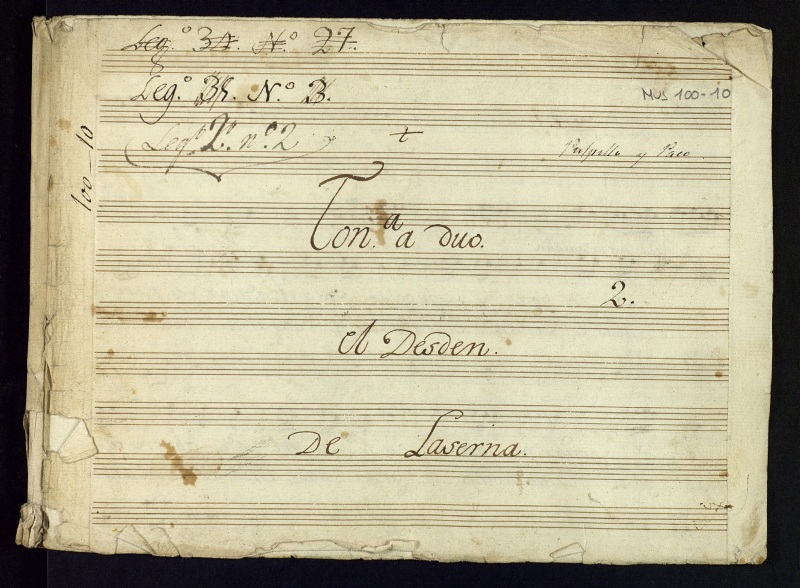 Leg.º 34. N.º 27.
Leg.º 35. N.º 3.
MUS 100-10
Leg.º 2º. n.º 2
+
y Paco.
100-10
Ton.ª a Duo.
2.
el Desden.
De Laserna.